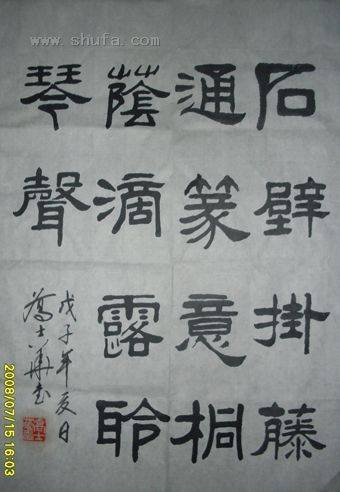 www.shufa.com
石壁掛藤
通篆意桐
蔭滴露聆
琴聲
戊子年夏日
士華
2008/07/15 16:03